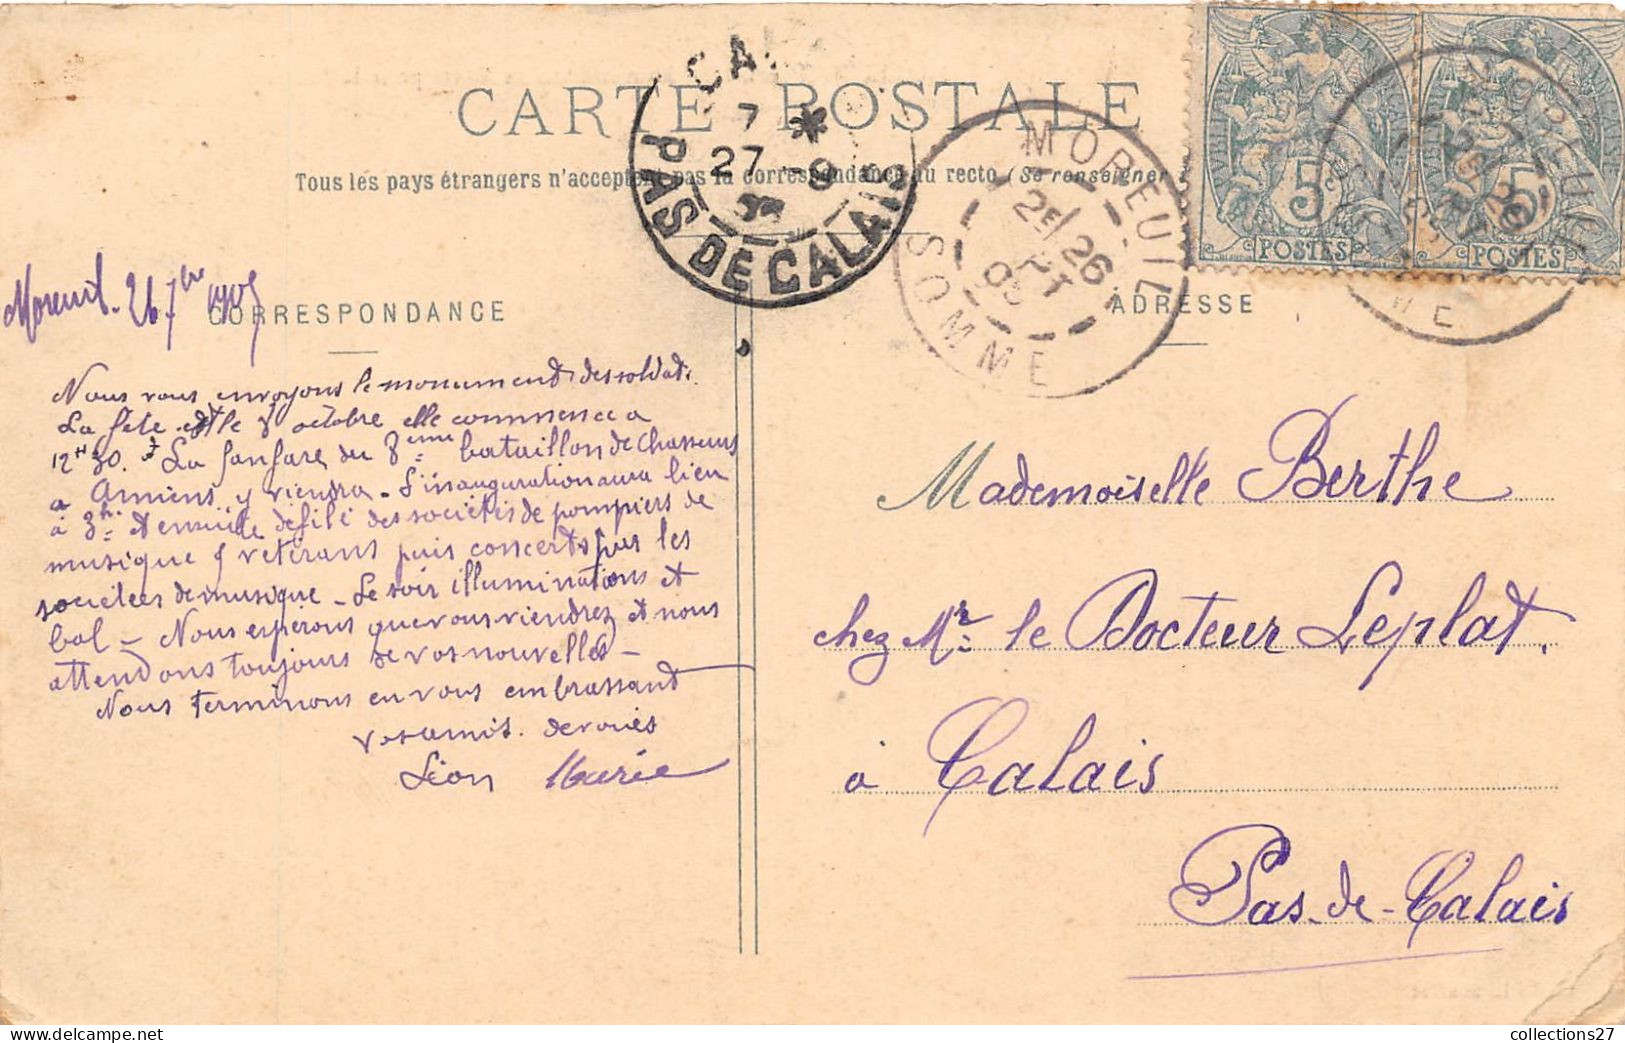 CARTE POSTALE
Tous les pays étrangers n'acceptent pas la correspondance au recto (Se renseigner
CA
7 *
27 9
PAS DE CALAIS
MOREUIL
2E / 26
05
SOMME
5c
POSTES
POSTES
CORRESPONDANCE
ADRESSE
Moreuil. 26 7bre 1905
Nous vous envoyons le monument des soldats.
La fête est le 8 octobre elle commence a
12H 30. La fanfare du 8ème bataillon de Chasseurs
a Amiens y viendra. L'inauguration aura lieu
à 3h. et ensuite défilé des sociétés de pompiers de
musique & vétérans puis concerts par les
sociétées de musique. Le soir illuminations et
bal - Nous espérons que vous viendrez et nous
attendons toujours de vos nouvelles -
Nous terminons en vous embrassant
vos amis. dévoués
Léon Marie
Mademoiselle Berthe
chez Mr. le Docteur Leplat.
à Calais
Pas-de-Calais
collections27